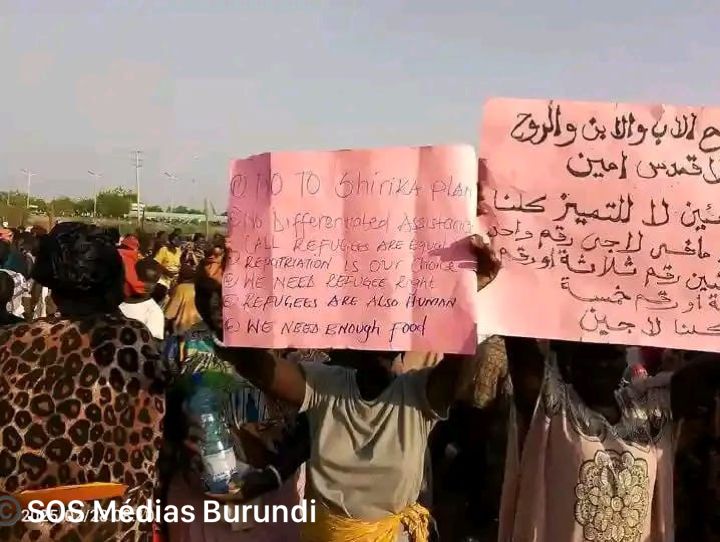 ① NO TO Shirika Plan
② No Differentiated Assistance
③ (ALL REFUGEES ARE Equal
④ REPATRIATION IS OUR Choice
⑤ WE NEED REFUGEE Right
⑥ REFUGEES ARE ALSO HUMAN
⑦ WE NEED ENOUGH Food
الاب والابن والروح
القدس امين
لا للتميز كلنا
مافي لاجى رقم واحد
رقم ثلاثة او رقم
او رقم خمسة
كلنا لاجين
© SOS Médias Burundi